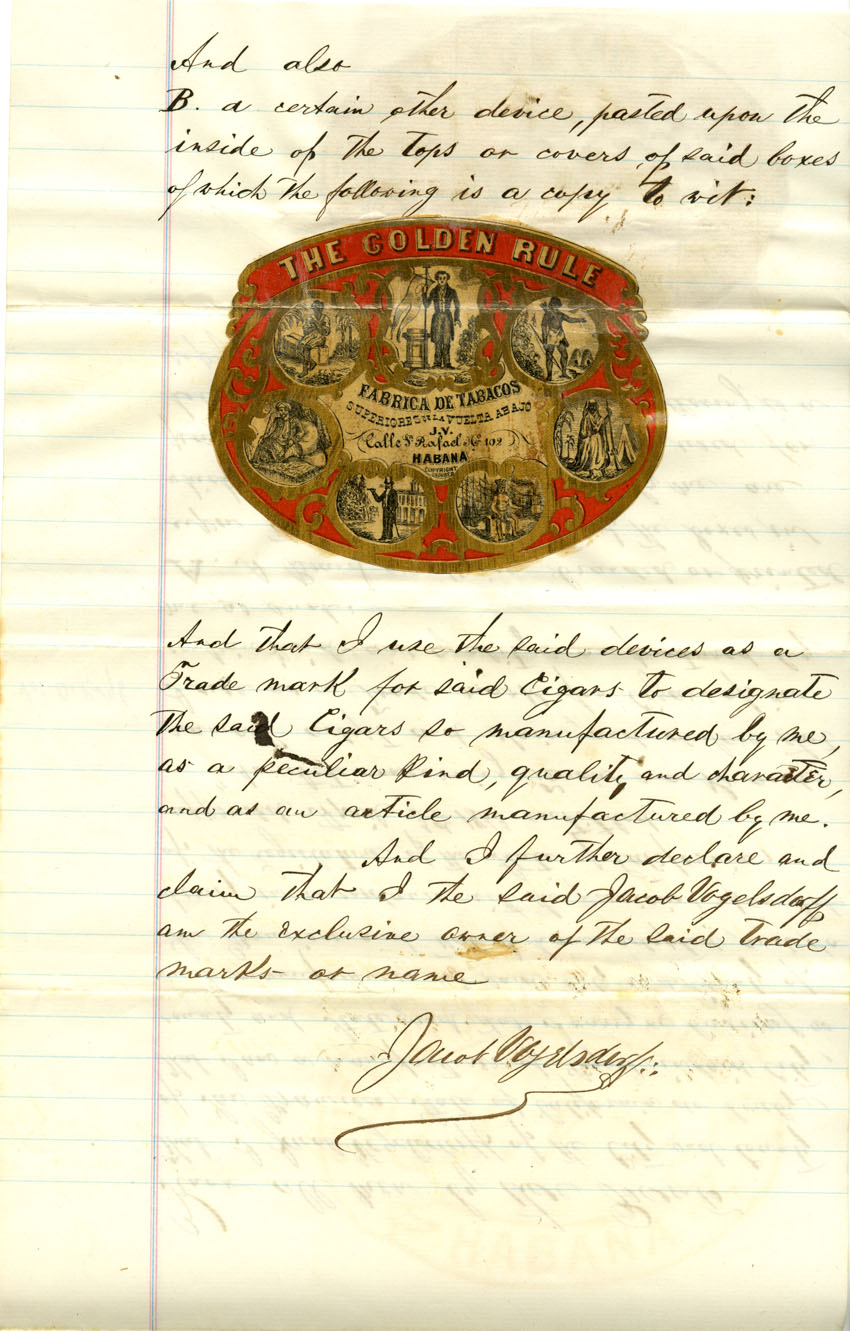 And also
B. a certain other device, pasted upon the
inside of the tops or covers of said boxes
of which the following is a copy to wit:
THE GOLDEN RULE
FABRICA DE TABACOS
SUPERIORES DE LA VUELTA ABAJO
J.V.
Calle Sn Rafael No 102
HABANA
COPYRIGHT
And that I use the said devices as a
Trade mark for said Cigars to designate
the said Cigars so manufactured by me,
as a peculiar kind, quality, and character,
and as an article manufactured by me.
And I further declare and
claim that I the said Jacob Vogelsdorff
am the exclusive owner of the said trade
marks or name
Jacob Vogelsdorff
HABANA